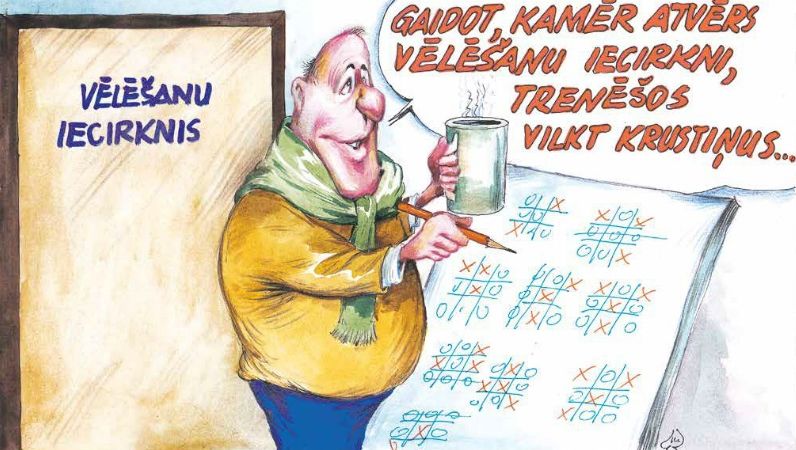 VĒLĒŠANU
IECIRKNIS
GAIDOT, KAMĒR ATVĒRS
VĒLĒŠANU IECIRKNI,
TRENĒŠOS
VILKT KRUSTIŅUS...